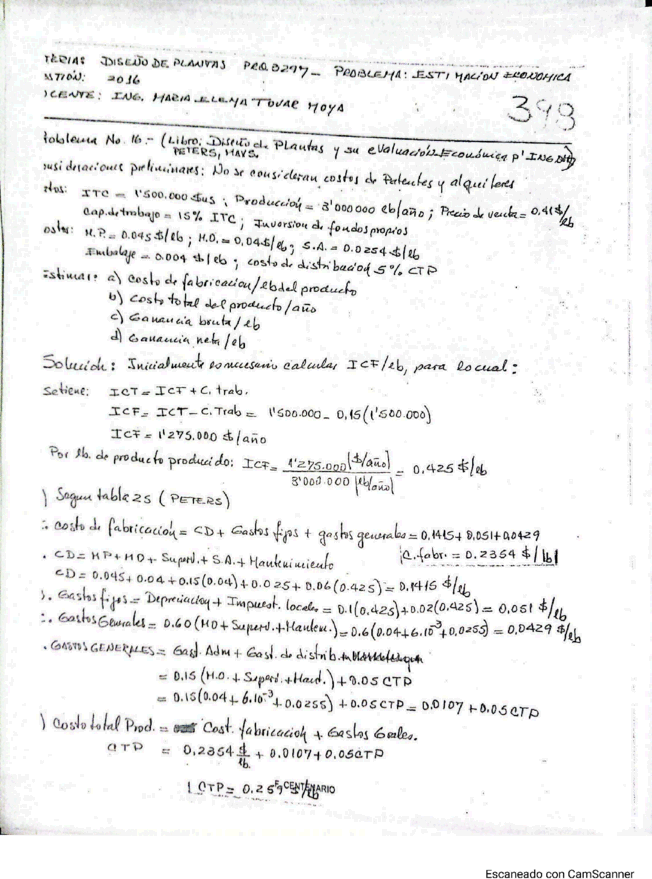 TERIA: DISEÑO DE PLANTAS PRQ 3297 - PROBLEMA: ESTIMACION ECONOMICA
STION: 2016
OCENTE: ING. MARIA ELENA TOVAR MOYA
393
roblema No. 16.- (Libro: Diseño de Plantas y su evaluación Económica p'
PETERS, MAYS.
nsideraciones preliminares: No se consideran costos de Patentes y alquileres
tos: ITC = 1'500.000 $us ; Producción = 3'000000 lb/año ; Precio de venta = 0.41 $/lb
Cap. de trabajo = 15% ITC ; Inversion de fondos propios
ostos: M.P. = 0.045 $/lb ; M.O. = 0,04 $/lb ; S.A. = 0.0254 $/lb
Embalaje = 0.004 $/lb ; costo de distribución 5% CTP
Estimar: a) costo de fabricación/lb del producto
b) costo total del producto/año
c) Ganancia bruta/lb
d) Ganancia neta/lb
Solución: Inicialmente es necesario calcular ICF/lb, para lo cual:
Se tiene: ICT = ICF + C. trab.
ICF = ICT - C. Trab = 1'500.000 - 0,15 (1'500.000)
ICF = 1'275.000 $/año
Por lb. de producto producido: ICF = 1'275.000 ($/año) / 3'000.000 (lb/año) = 0,425 $/lb
) Segun tabla 25 (PETERS)
∴ costo de fabricación = CD + Gastos fijos + gastos generales = 0.1415 + 0,051 + 0.0429
C. fabr. = 0.2354 $/lb
. CD = MP + MO + Superv. + S.A. + Mantenimiento
CD = 0.045 + 0.04 + 0.15 (0.04) + 0.025 + 0.06 (0.425) = 0.1415 $/lb
). Gastos fijos = Depreciación + Impuest. locales = 0.1 (0.425) + 0.02 (0.425) = 0.051 $/lb
∴ Gastos Generales = 0.60 (MO + Superv. + Manten.) = 0.6 (0.04 + 6.10⁻³ + 0,0255) = 0.0429 $/lb
. GASTOS GENERALES = Gast. Adm + Gast. de distrib.
= 0,15 (M.O. + Superv. + Mant.) + 0.05 CTP
= 0.15 (0.04 + 6.10⁻³ + 0,0255) + 0.05 CTP = 0.0107 + 0.05 CTP
) Costo total Prod. = Cost. fabricación + Gastos Gerales.
CTP = 0,2354 $/lb. + 0.0107 + 0,05 CTP
CTP = 0.259 $/lb
Fº CENTENARIO
Escaneado con CamScanner